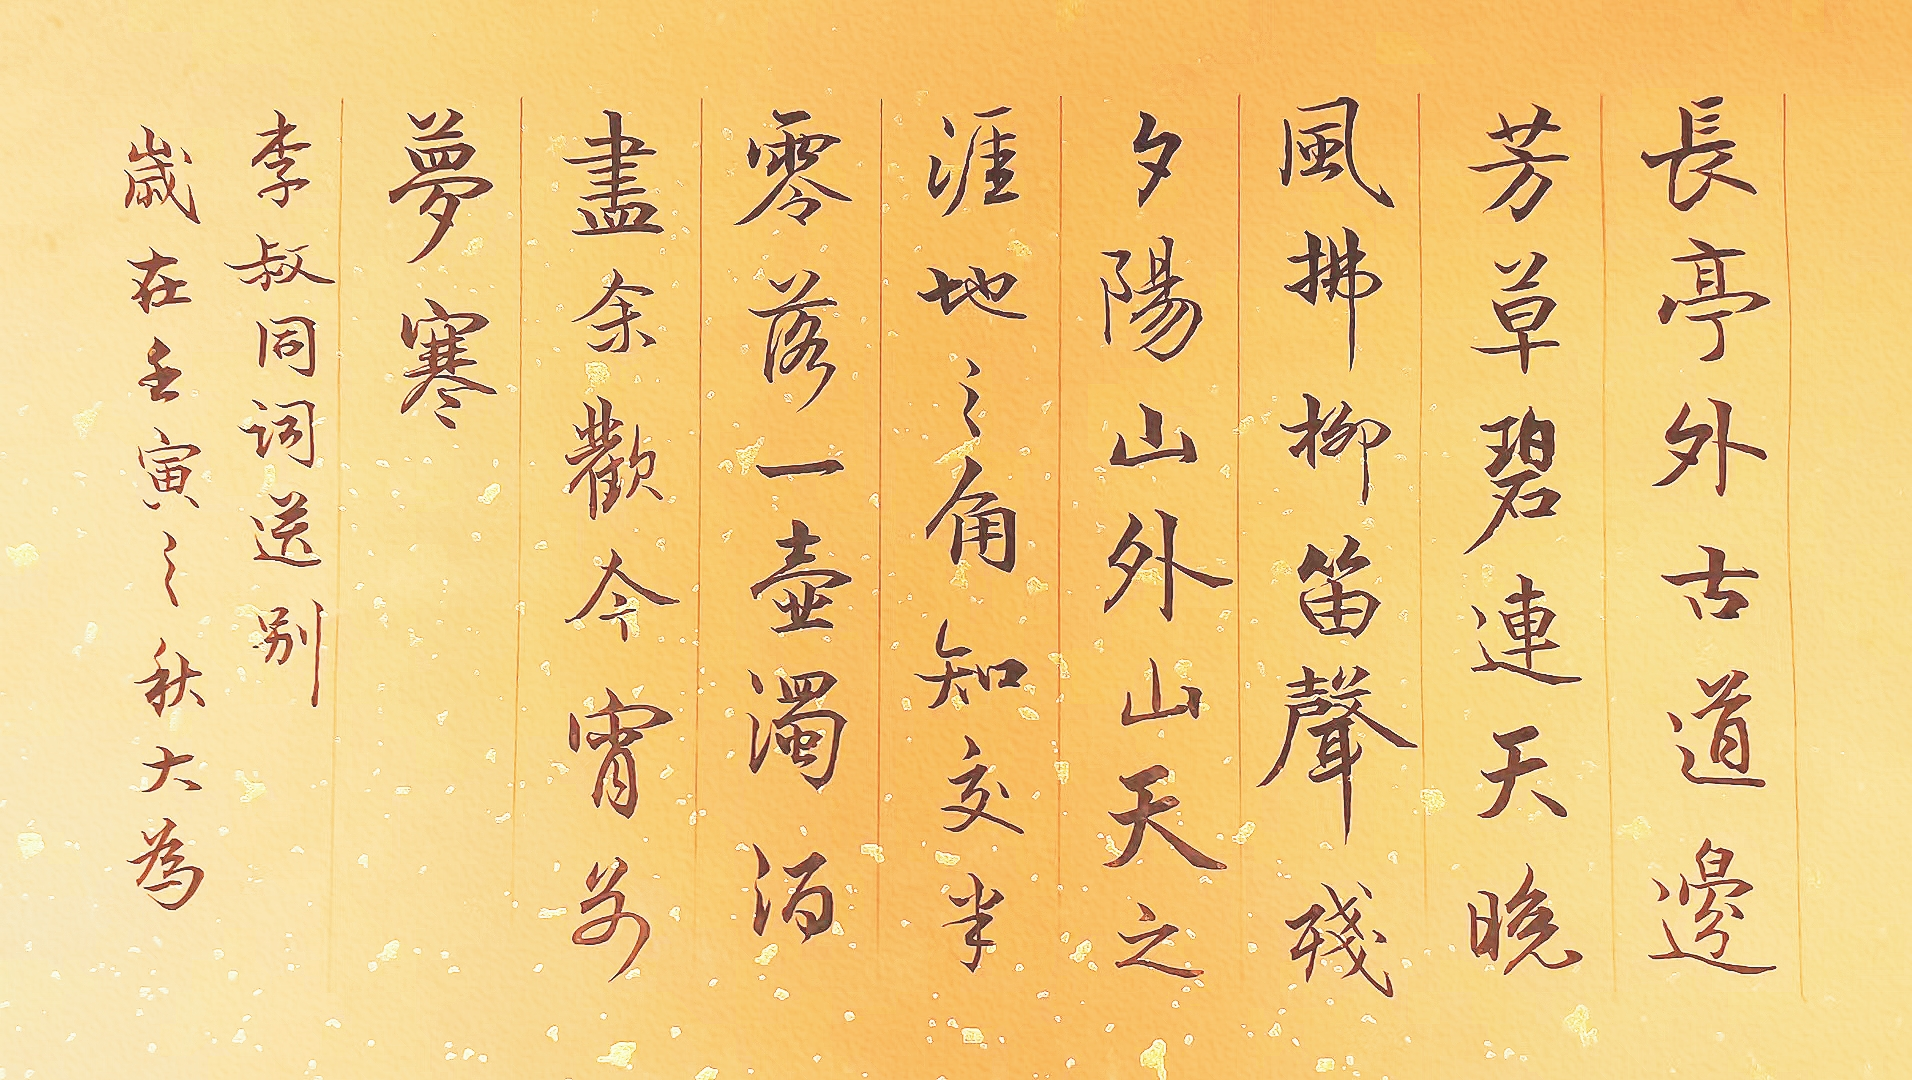 長亭外古道邊
芳草碧連天晚
風拂柳笛聲殘
夕陽山外山天之
涯地之角知交半
零落一壺濁酒
盡余歡今宵别
夢寒
李叔同詞送别
歲在壬寅之秋大為